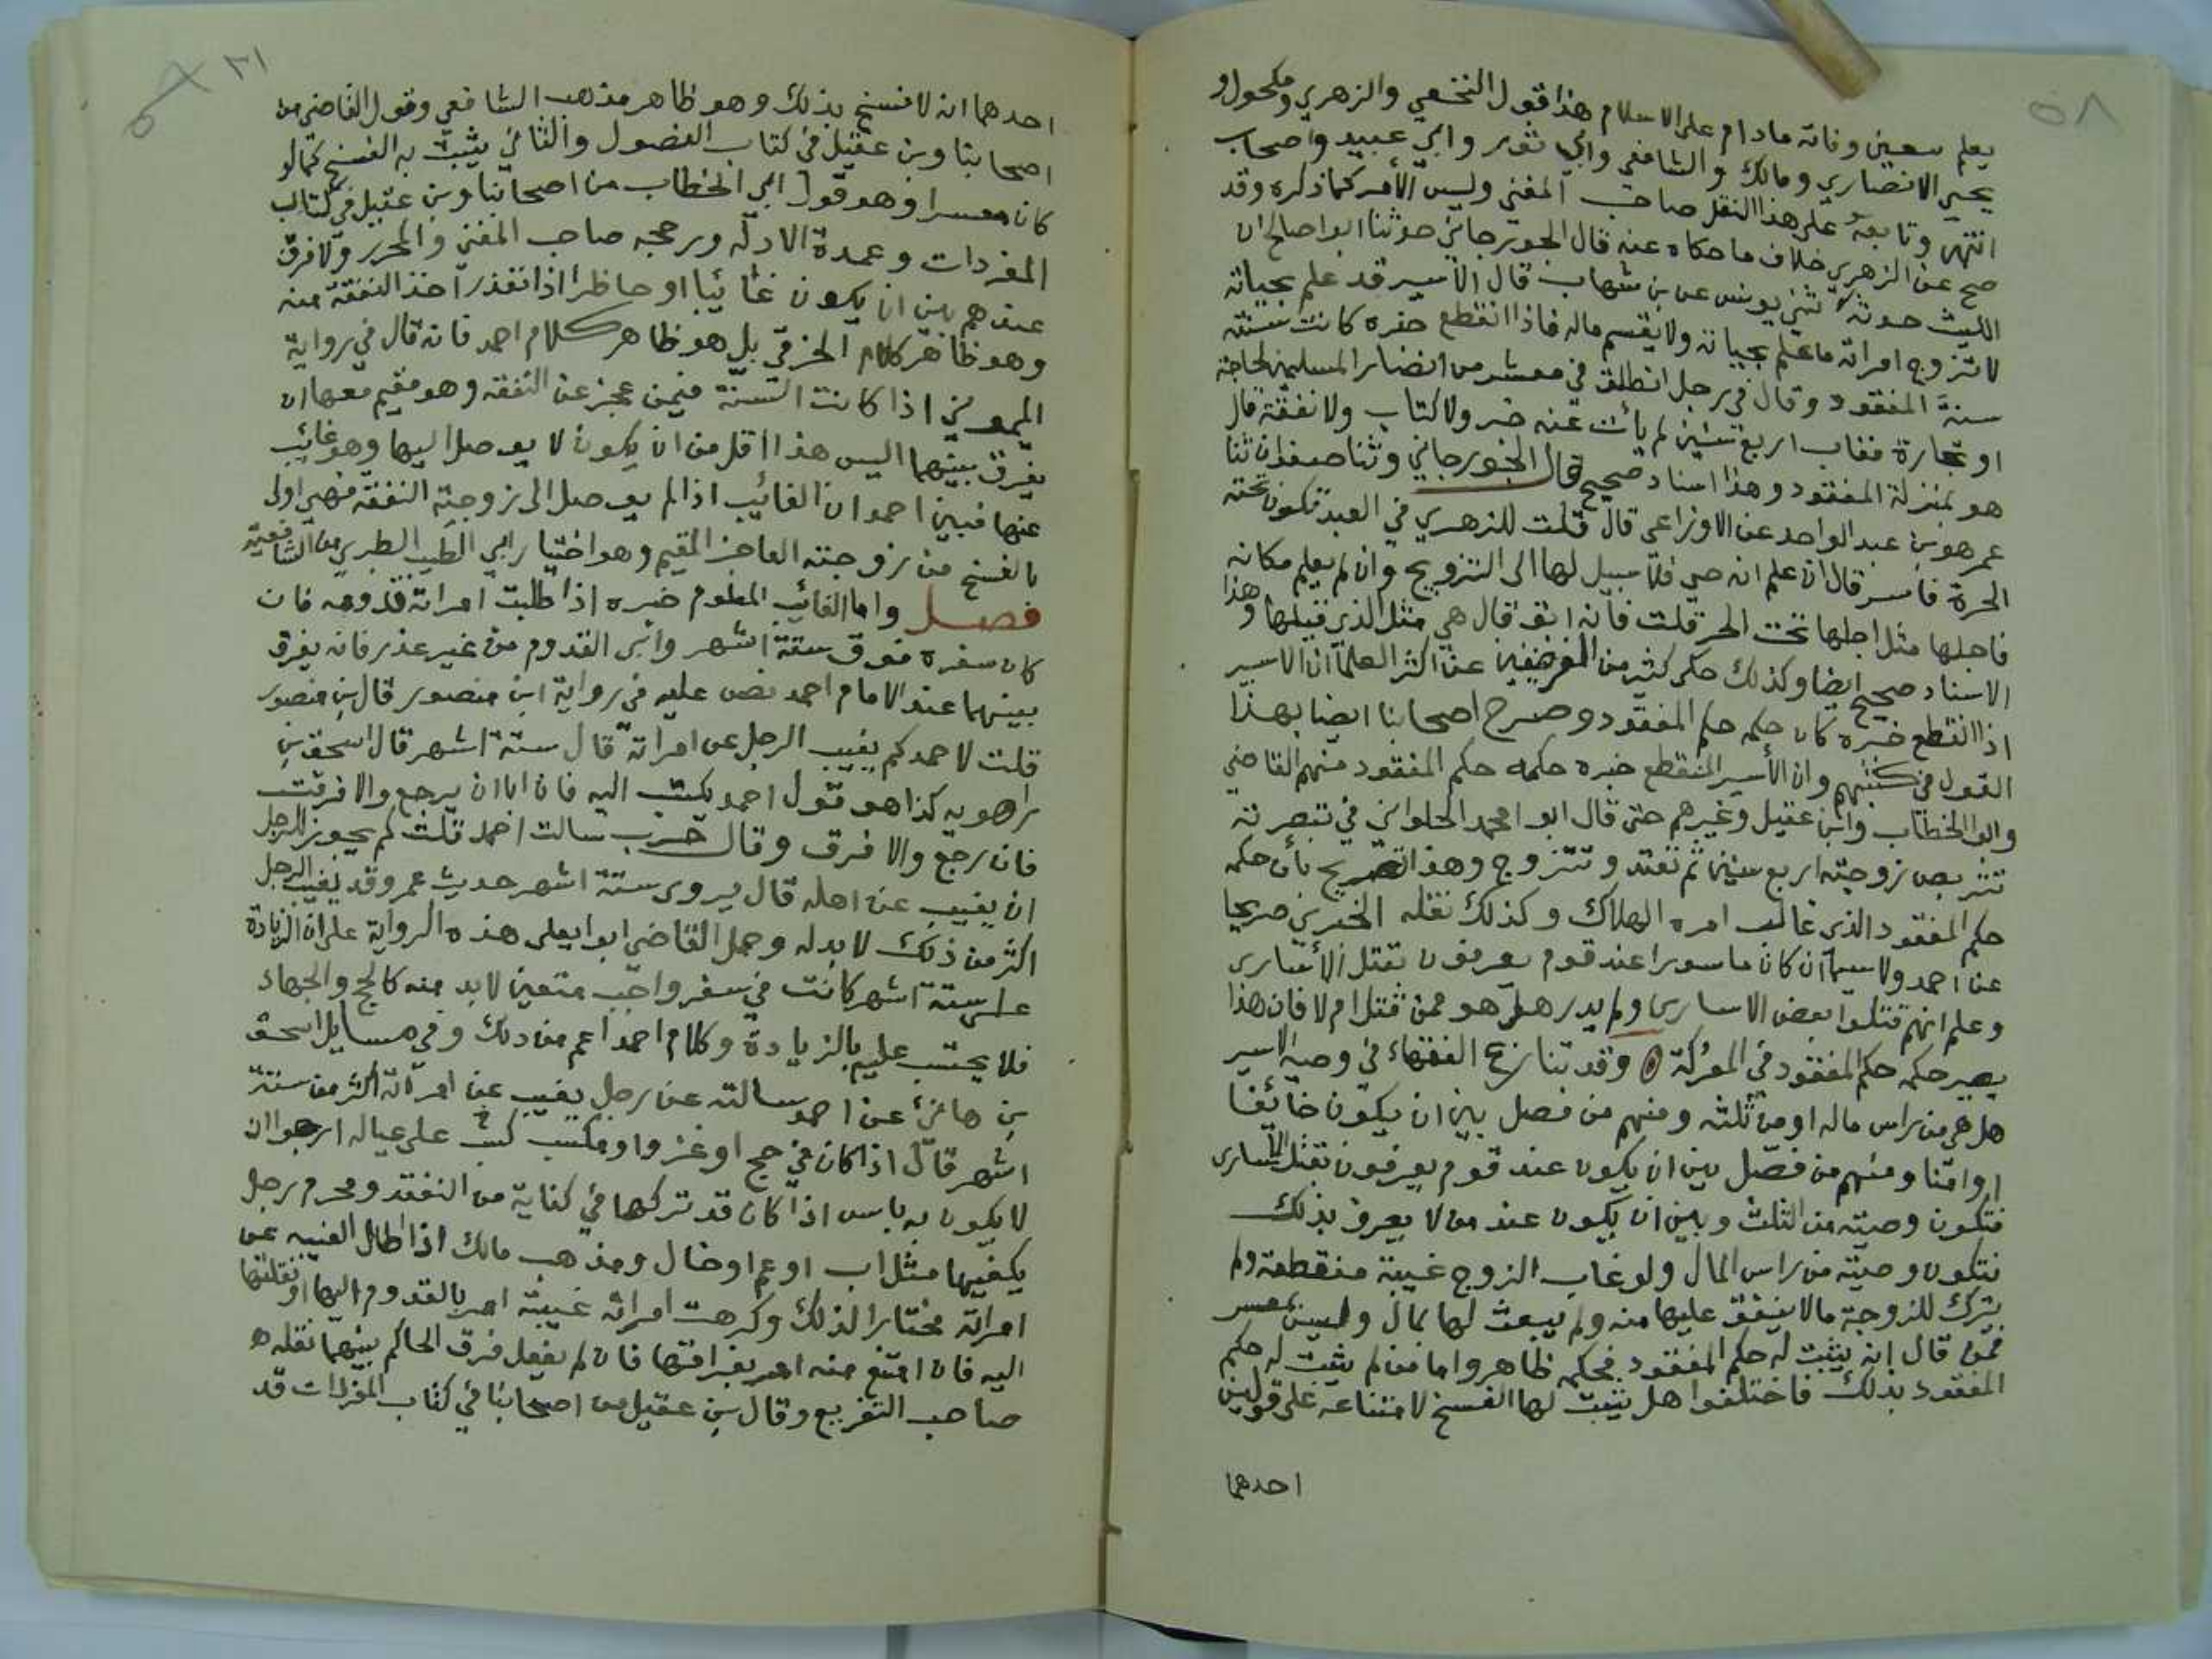 ٥٨
يعلم بيقين وفاته مادام على الاسلام هذا قول النخعي والزهري ومكحول و
يحيى الانصاري ومالك والشافعي وابي ثور وابي عبيد واصحاب
انتهى وتابعه على هذا النقل صاحب المغني وليس الأمر كما ذكره وقد
صح عن الزهري خلاف ما حكاه عنه قال الجوزجاني حدثنا ابو صالح ان
الليث حدثه ثني يونس عن بن شهاب قال الاسير قد علم بحياته
لا تتزوج امراته ما علم بحياته ولا يقسم ماله فاذا انقطع خبره كانت سنته
سنة المفقود وقال في رجل انطلق في معشر من انصار المسلمين لحاجة
او تجارة فغاب اربع سنين لم يأت عنه خبر ولا كتاب ولا نفقة قال
هو بمنزلة المفقود وهذا اسناد صحيح قال الجوزجاني وثنا صفوان ثنا
عمر هو بن عبد الواحد عن الاوزاعي قال قلت للزهري في العبد تكون تحته
الحرة فاسر قال ان علم انه حي فلا سبيل لها الى التزويج وان لم يعلم مكانه
فاجلها مثل اجلها تحت الحر قلت فانه ابق قال هي مثل الذي قبلها وهذا
الاسناد صحيح ايضا وكذلك حكى كثير من عن اكثر العلما ان الاسير
اذا انقطع خبره كان حكمه حكم المفقود وصرح اصحابنا ايضا بهذا
القول في كتبهم وان الأسير المنقطع خبره حكمه حكم المفقود منهم القاضي
وابو الخطاب وابن عقيل وغيرهم حتى قال ابو محمد الحلواني في تبصرته
تتربص زوجته اربع سنين ثم تعتد وتتزوج وهذا تصريح بأن حكمه
حكم المفقود الذي غالب امره الهلاك وكذلك نقله صريحا
عن احمد ولا سيما ان كان ماسورا عند قوم يعرفون بقتل الأسارى
وعلم انهم قتلوا بعض الاسارى ولم يدر هل هو ممن قتل ام لا فان هذا
يصير حكمه حكم المفقود في المعركة وقد تنازع الفقهاء في وصية الاسير
هل هي من راس ماله او من ثلثه ومنهم من فصل بين ان يكون خائفا
او امنا ومنهم من فصل بين ان يكون عند قوم يعرفون بقتل الأسارى
فتكون وصيته من الثلث وبين ان يكون عند من لا يعرف بذلك
فتكون وصيته من راس المال ولو غاب الزوج غيبة منقطعة ولم
يترك للزوجة مالا ينفق عليها منه ولم يبعث لها بمال وليس بمعسر
فمن قال انه يثبت له حكم المفقود فحكمه ظاهر واما من لم يثبت له حكم
المفقود بذلك فاختلفوا هل يثبت لها الفسخ لامتناعه على قولين
احدهما
٢١
احدهما انه لا فسخ بذلك وهو ظاهر مذهب الشافعي وقول القاضي من
اصحابنا وبن عقيل في كتاب الفصول والثاني يثبت به الفسخ كما لو
كان معسرا وهو قول ابي الخطاب من اصحابنا وبن عقيل في كتاب
المفردات وعمدة الادلة ورجحه صاحب المغني والمحرر ولا فرق
عندهم بين ان يكون غائبا او حاظرا اذا تعذر اخذ النفقة منه
وهو ظاهر كلام الخرقي بل هو ظاهر كلام احمد فانه قال في رواية
الميموني اذا كانت السنة فيمن عجز عن النفقه وهو مقيم معها ان
يفرق بينهما اليس هذا اقل من ان يكون لا يوصل اليها وهو غائب
عنها فبين احمد ان الغائب اذا لم يوصل الى زوجته النفقة فهي اولى
بالفسخ من زوجته العاجز المقيم وهو اختيار ابي الطيب الطبري من الشافعية
فصل واما الغائب المعلوم خبره اذا طلبت امراته قدومه فان
كان سفره فوق ستة اشهر وابى القدوم من غير عذر فانه يفرق
بينهما عند الامام احمد نص عليه في رواية ابن منصور قال بن منصور
قلت لاحمد كم يغيب الرجل عن امراته قال ستة اشهر قال اسحق بن
راهويه كذا هو قول احمد يكتب اليه فان ابا ان يرجع والا فرقت
فان رجع والا فرق وقال حرب سالت احمد قلت لم يجوز للرجل
ان يغيب عن اهله قال يروى ستة اشهر حديث عمر وقد يغيب الرجل
اكثر من ذلك لا بد له وحمل القاضي ابو يعلى هذه الرواية على ان الزيادة
على ستة اشهر كانت في سفر واجب متعين لابد منه كالحج والجهاد
فلا يحتسب عليه بالزيادة وكلام احمد اعم من ذلك وفي مسايل اسحق
بن هانئ عن احمد سالته عن رجل يغيب عن امراته اكثر من ستة
اشهر قال اذا كان في حج او غزو او مكسب كسب على عياله ارجوا ان
لا يكون به باس اذا كان قد تركها في كفاية من النفقه ومحرم رجل
يكفيها مثل اب او عم او خال ومذهب مالك اذا اطال الغيبه عن
امراته مختارا لذلك وكرهت امراته غيبته امر بالقدوم اليها او نقلتها
اليه فان امتنع منه امر بفراقها فان لم يفعل فرق الحاكم بينهما نقله
صاحب التفريع وقال بن عقيل من اصحابنا في كتاب المفردات قد